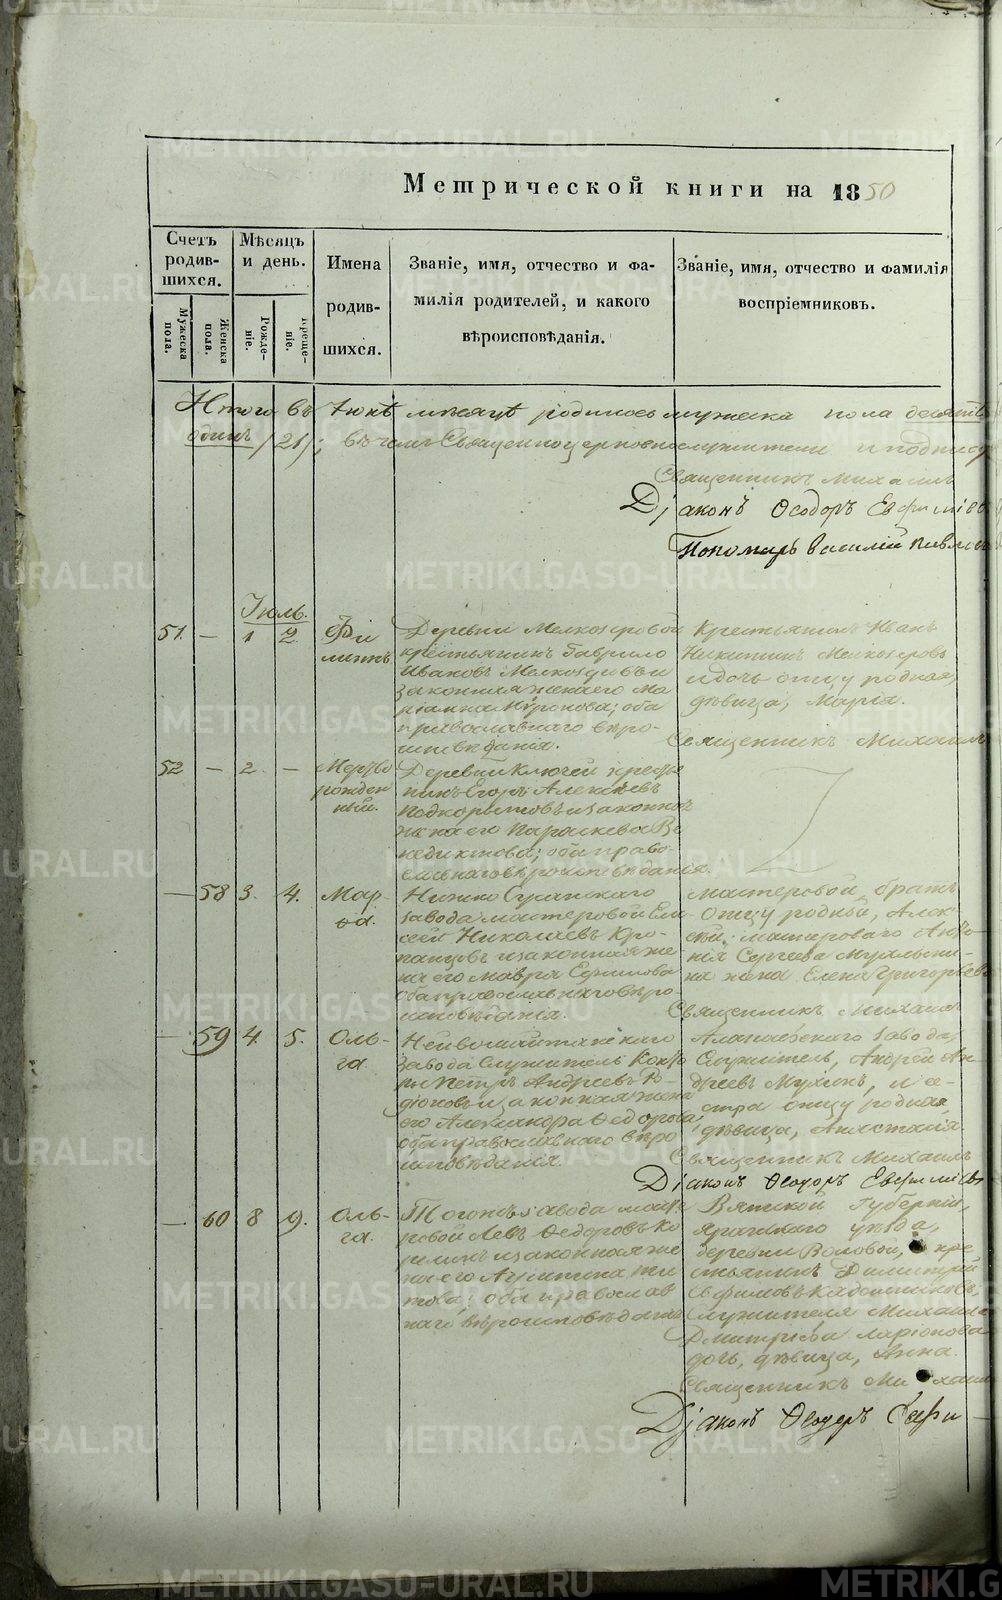 Метрической книги на 1850
Счетъ родив-шихся.
Мѣсяцъ и день.
Имена родив-шихся.
Званіе, имя, отчество и фа-
милія родителей, и какого
вѣроисповѣданія.
Званіе, имя, отчество и фамилія
воспріемниковъ.
Мужеска пола.
Женска пола.
Рожде-ніе.
Креще-ніе.
Итого въ Іюнѣ мѣсяцѣ родилось мужеска пола десять
одинъ /21/; въ чемъ Священноцерковнослужители и подпису
Священникъ Михаилъ
Діаконъ Ѳеодоръ Евфиміев
Пономарь Василій
Іюль.
51. — 1 2. Фи
липпъ
Деревни Мелкозеровой
крестьянинъ Гаврило
Ивановъ Мелкозеровъ и
законная жена его Ма
ріанна Миронова; оба
православнаго вѣро-
исповѣданія.
Крестьянинъ Иванъ
Никитинъ Мелкозеровъ
и дочь отцу родная,
дѣвица, Марія.
Священникъ Михаилъ
52 — 2. — Мертво
рожден
ный.
Деревни Ключей кресть
нинъ Егоръ Алексѣевъ
Подкорытовъ и законная
жена его Параскева Ве
недиктова; оба право-
славнаго вѣроисповѣданія.
— 58 3. 4. Мар-
ѳа.
Нижно Сусанскаго
завода мастеровой Ели
сей Николаевъ
и законная же
на его Мавра Ефимова
оба православнаго вѣро
исповѣданія.
мастеровой, братъ
отцу родный, Алек-
сѣй; мастероваго
Сергеева
на жена Елена Григорьева
Священникъ Михаилъ
— 59 4. 5. Оль-
га.
Нейвошайтанскаго
завода Служитель
Петръ Андреевъ Ро-
діоновъ и законная жена
его Александра Ѳедорова,
оба православнаго вѣро
исповѣданія.
Алапаевскаго завода
Служитель, Андрей Ан-
дреевъ Мухинъ, и се-
стра отцу родная,
дѣвица, Анастасія.
Священникъ Михаилъ
Діаконъ Ѳеодоръ Евфиміев
— 60 8 9. Оль-
га.
Того же завода масте
ровой Левъ Ѳедоровъ
и законная же
на его Ти
това; оба православ
наго вѣроисповѣданія
Вятской Губерніи,
уѣзда,
деревни кре
стьянинъ Димитрій
Ефимовъ
Служителя Михаила
Дмитріева Ларіонова
дочь, дѣвица, Анна.
Священникъ Михаил
Діаконъ Ѳеодоръ Евфи
METRIKI.GASO-URAL.RU